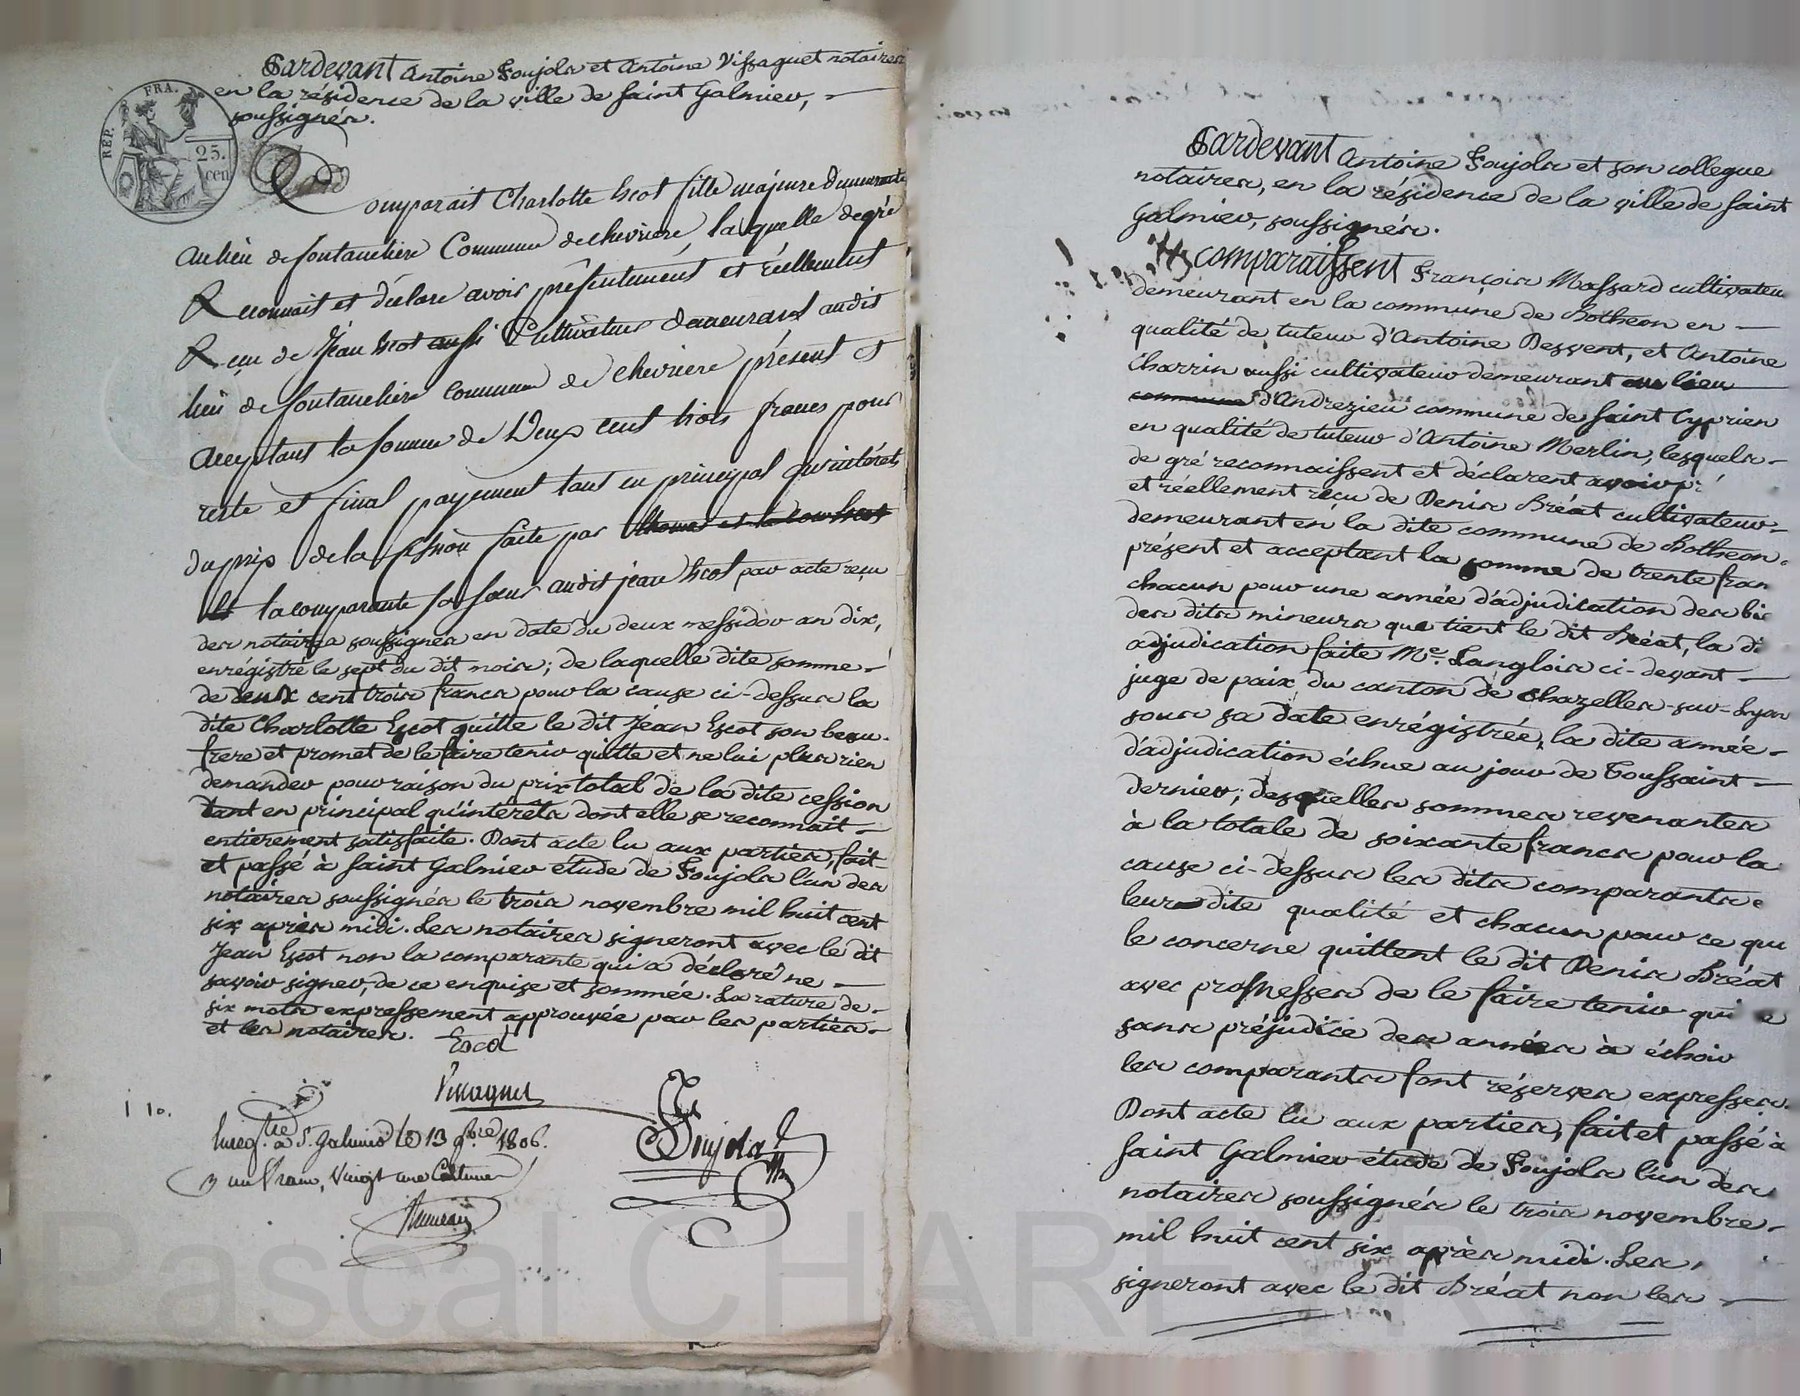 Pardevant Antoine Soujols et Antoine Vissaguet notaires
en la résidence de la ville de Saint Galmier,
soussignés.
REP. FRA.
25. cen
Comparait Charlotte Escot fille majeure demeurante
au lieu de fontanchère Commune de chevrière, la quelle de gré
Reconnait et déclare avoir présentement et réellement
Reçu de Jean Escot aussi Cultivateur demeurant audit
lieu de fontanchère commune de chevrière présent et
acceptant la somme de Deux cent trois francs pour
reste et final payement tant en principal qu'intérêts
du prix de la cession faite par
la comparante sa soeur audit jean Escot par acte reçu
des notaires soussignés en date du deux messidor an dix,
enrégistré le sept du dit mois; de laquelle dite somme
de deux cent trois francs pour la cause ci-dessus la
dite Charlotte Escot quitte le dit Jean Escot son beau-
frere et promet de le faire tenir quitte et ne lui plus rien
demander pour raison du prix total de la dite cession
tant en principal qu'intérêts dont elle se reconnait
entièrement satisfaite. Dont acte lu aux parties, fait
et passé à Saint Galmier étude de Soujols l'un des
notaires soussignés le trois novembre mil huit cent
six après midi. Les notaires signeront avec le dit
Jean Escot non la comparante qui a déclaré ne
savoir signer, de ce enquise et sommée. La rature de
six mots expressement approuvée par les parties
et les notaires.
Escot
Vissaguet
Soujols
1 10.
Enregtré à St. Galmier le 13 9bre 1806.
un franc, vingt une Centimes
Pardevant Antoine Soujols et son collegue
notaires, en la résidence de la ville de Saint
Galmier, soussignés.
comparaissent François Massard cultivateur
demeurant en la commune de Bothéon en
qualité de tuteur d'Antoine Desvent, et Antoine
Charrin aussi cultivateur demeurant au lieu
commune d'Andrezieu commune de Saint Cyprien
en qualité de tuteur d'Antoine Merlin, lesquels
de gré reconnaissent et déclarent avoir pré
et réellement reçu de Denis Bréat cultivateur
demeurant en la dite commune de Bothéon
présent et acceptant la somme de trente fran
chacun pour une année d'adjudication des bie
des dits mineurs que tient le dit Bréat, la di
adjudication faite Me. Langlois ci-devant
juge de paix du canton de Chazelles-sur-Lyon
sous sa date enrégistrée, la dite année
d'adjudication échue au jour de Toussaint
dernier; desquelles sommes revenantes
à la totale de soixante francs pour la
cause ci-dessus les dits comparants e
leur dite qualité et chacun pour ce qui
le concerne quittent le dit Denis Bréat
avec promesses de le faire tenir qui e
sans préjudice des années à échoir
les comparants font réserves expresses.
Dont acte lu aux parties, fait et passé à
Saint Galmier étude de Soujols l'un des
notaires soussignés le trois novembre
mil huit cent six après midi. Les
signeront avec le dit Bréat non les
Pascal CHAREYRON